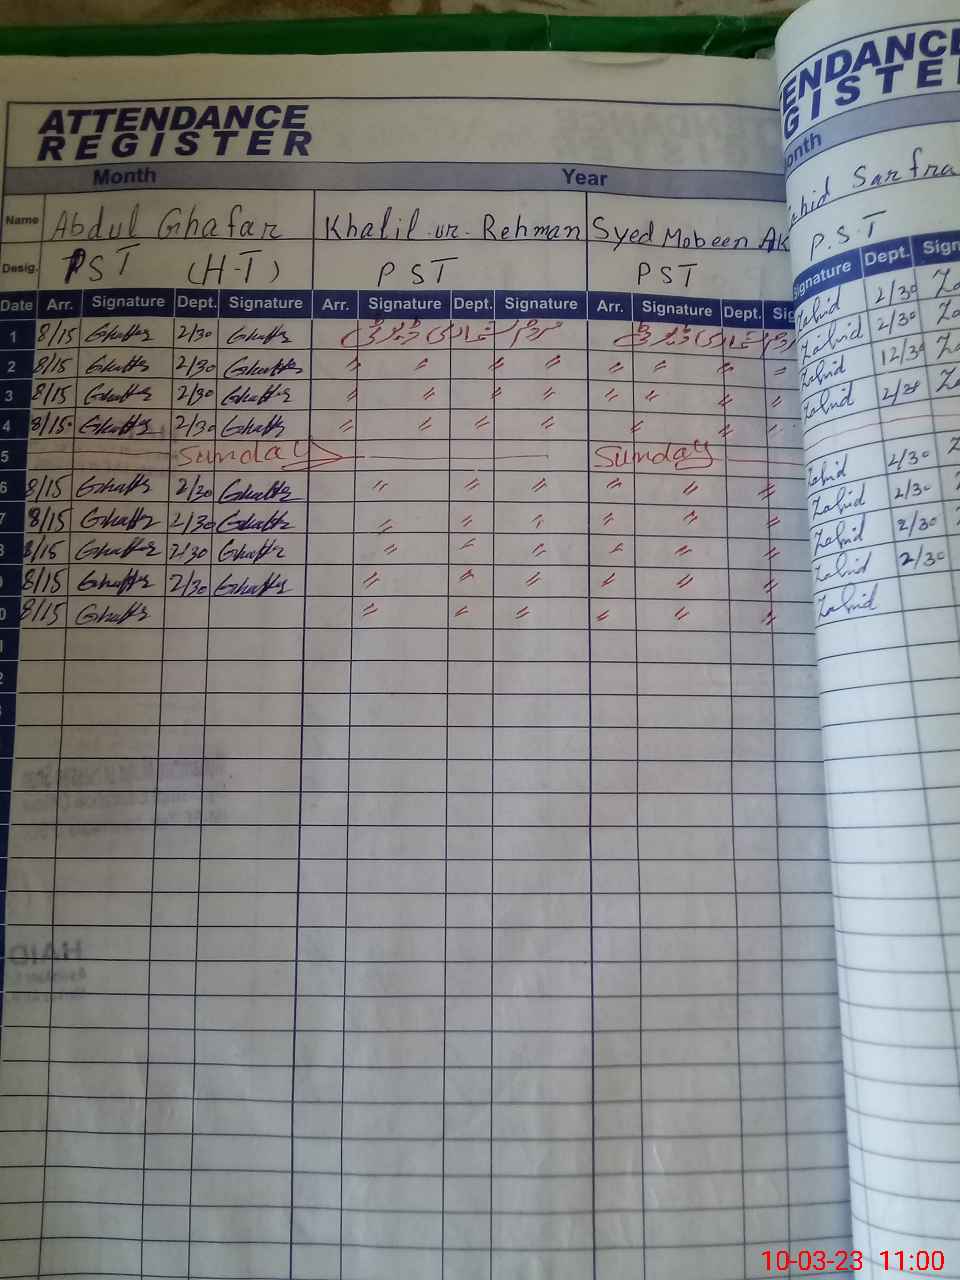 ATTENDANCE
REGISTER
Month Year
Name Abdul Ghafar Khalil ur. Rehman Syed Mobeen Ak
Desig. PST (H-T) PST PST
Date Arr. Signature Dept. Signature Arr. Signature Dept. Signature Arr. Signature Dept. Sig
1 8/15 Ghaffs 2/30 Ghaffs
2 8/15 Ghaffs 2/30 Ghaffs 〃 〃 〃 〃 〃 〃 〃 〃
3 8/15 Ghaffs 2/30 Ghaffs 〃 〃 〃 〃 〃 〃 〃 〃
4 8/15 Ghaffs 2/30 Ghaffs 〃 〃 〃 〃 〃 〃 〃
5 Sunday Sunday
6 8/15 Ghaffs 2/30 Ghaffs 〃 〃 〃 〃 〃 〃
7 8/15 Ghaffs 2/30 Ghaffs 〃 〃 〃 〃 〃 〃
8/15 Ghaffs 2/30 Ghaffs 〃 〃 〃 〃 〃 〃
8/15 Ghaffs 2/30 Ghaffs 〃 〃 〃 〃 〃 〃
0 8/15 Ghaffs 〃 〃 〃 〃 〃 〃
ENDANCE
GISTE
onth
ahid Sarfra
P.S.T
Signature Dept. Sign
Zahid 2/30 Za
Zahid 2/30 Za
Zahid 12/30 Za
Zahid 2/30 Za
Zahid 2/30
Zahid 2/30
Zahid 2/30
Zahid 2/30
Zahid
10-03-23 11:00